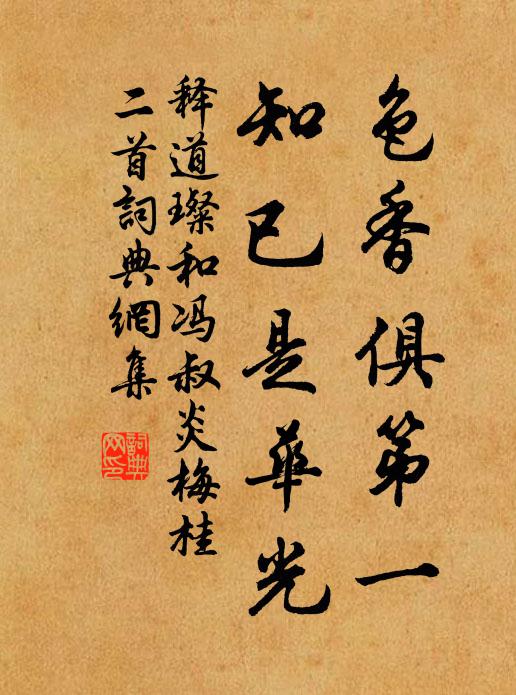 色香俱第一
知已是華光
释道璨和冯叔炎梅桂
二首詞典網集
詞典网印